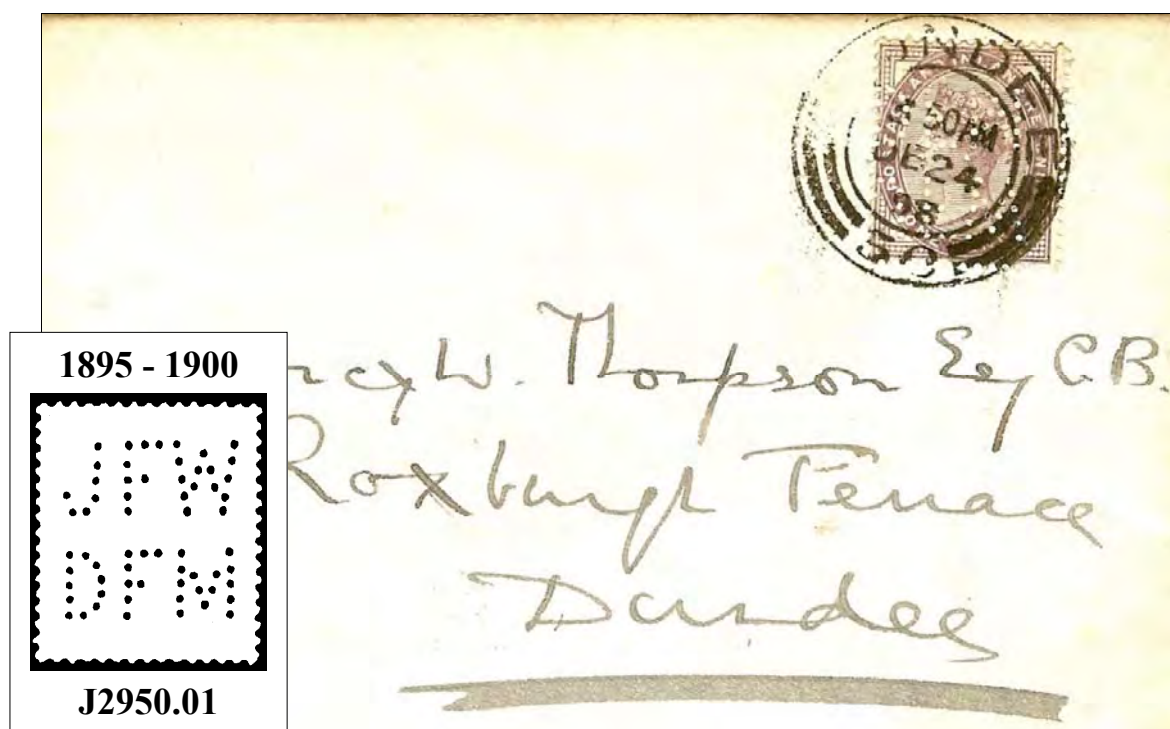 NDEE
50AM
DE24
98
1895 - 1900
JFW
DFM
J2950.01
W. Thompson Esq C.B.
Roxburgh Terrace
Dundee